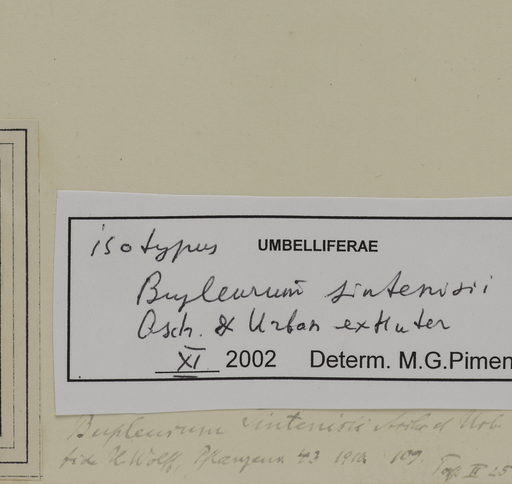 isotypus UMBELLIFERAE
Bupleurum sintenisii
Asch. & Urban ex Huter
XI 2002 Determ. M.G.Pimen
Bupleurum Sintenisii Urb
fide H. Wolff, Pflanzenr. 43 1910 109.